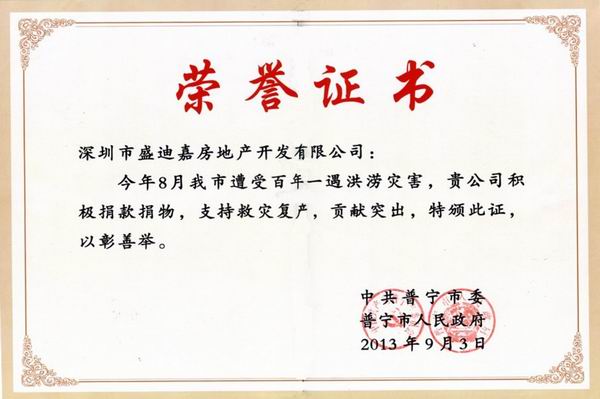 荣誉证书
深圳市盛迪嘉房地产开发有限公司：
今年8月我市遭受百年一遇洪涝灾害，贵公司积
极捐款捐物，支持救灾复产，贡献突出，特颁此证，
以彰善举。
中共普宁市委
普宁市人民政府
2013年9月3日